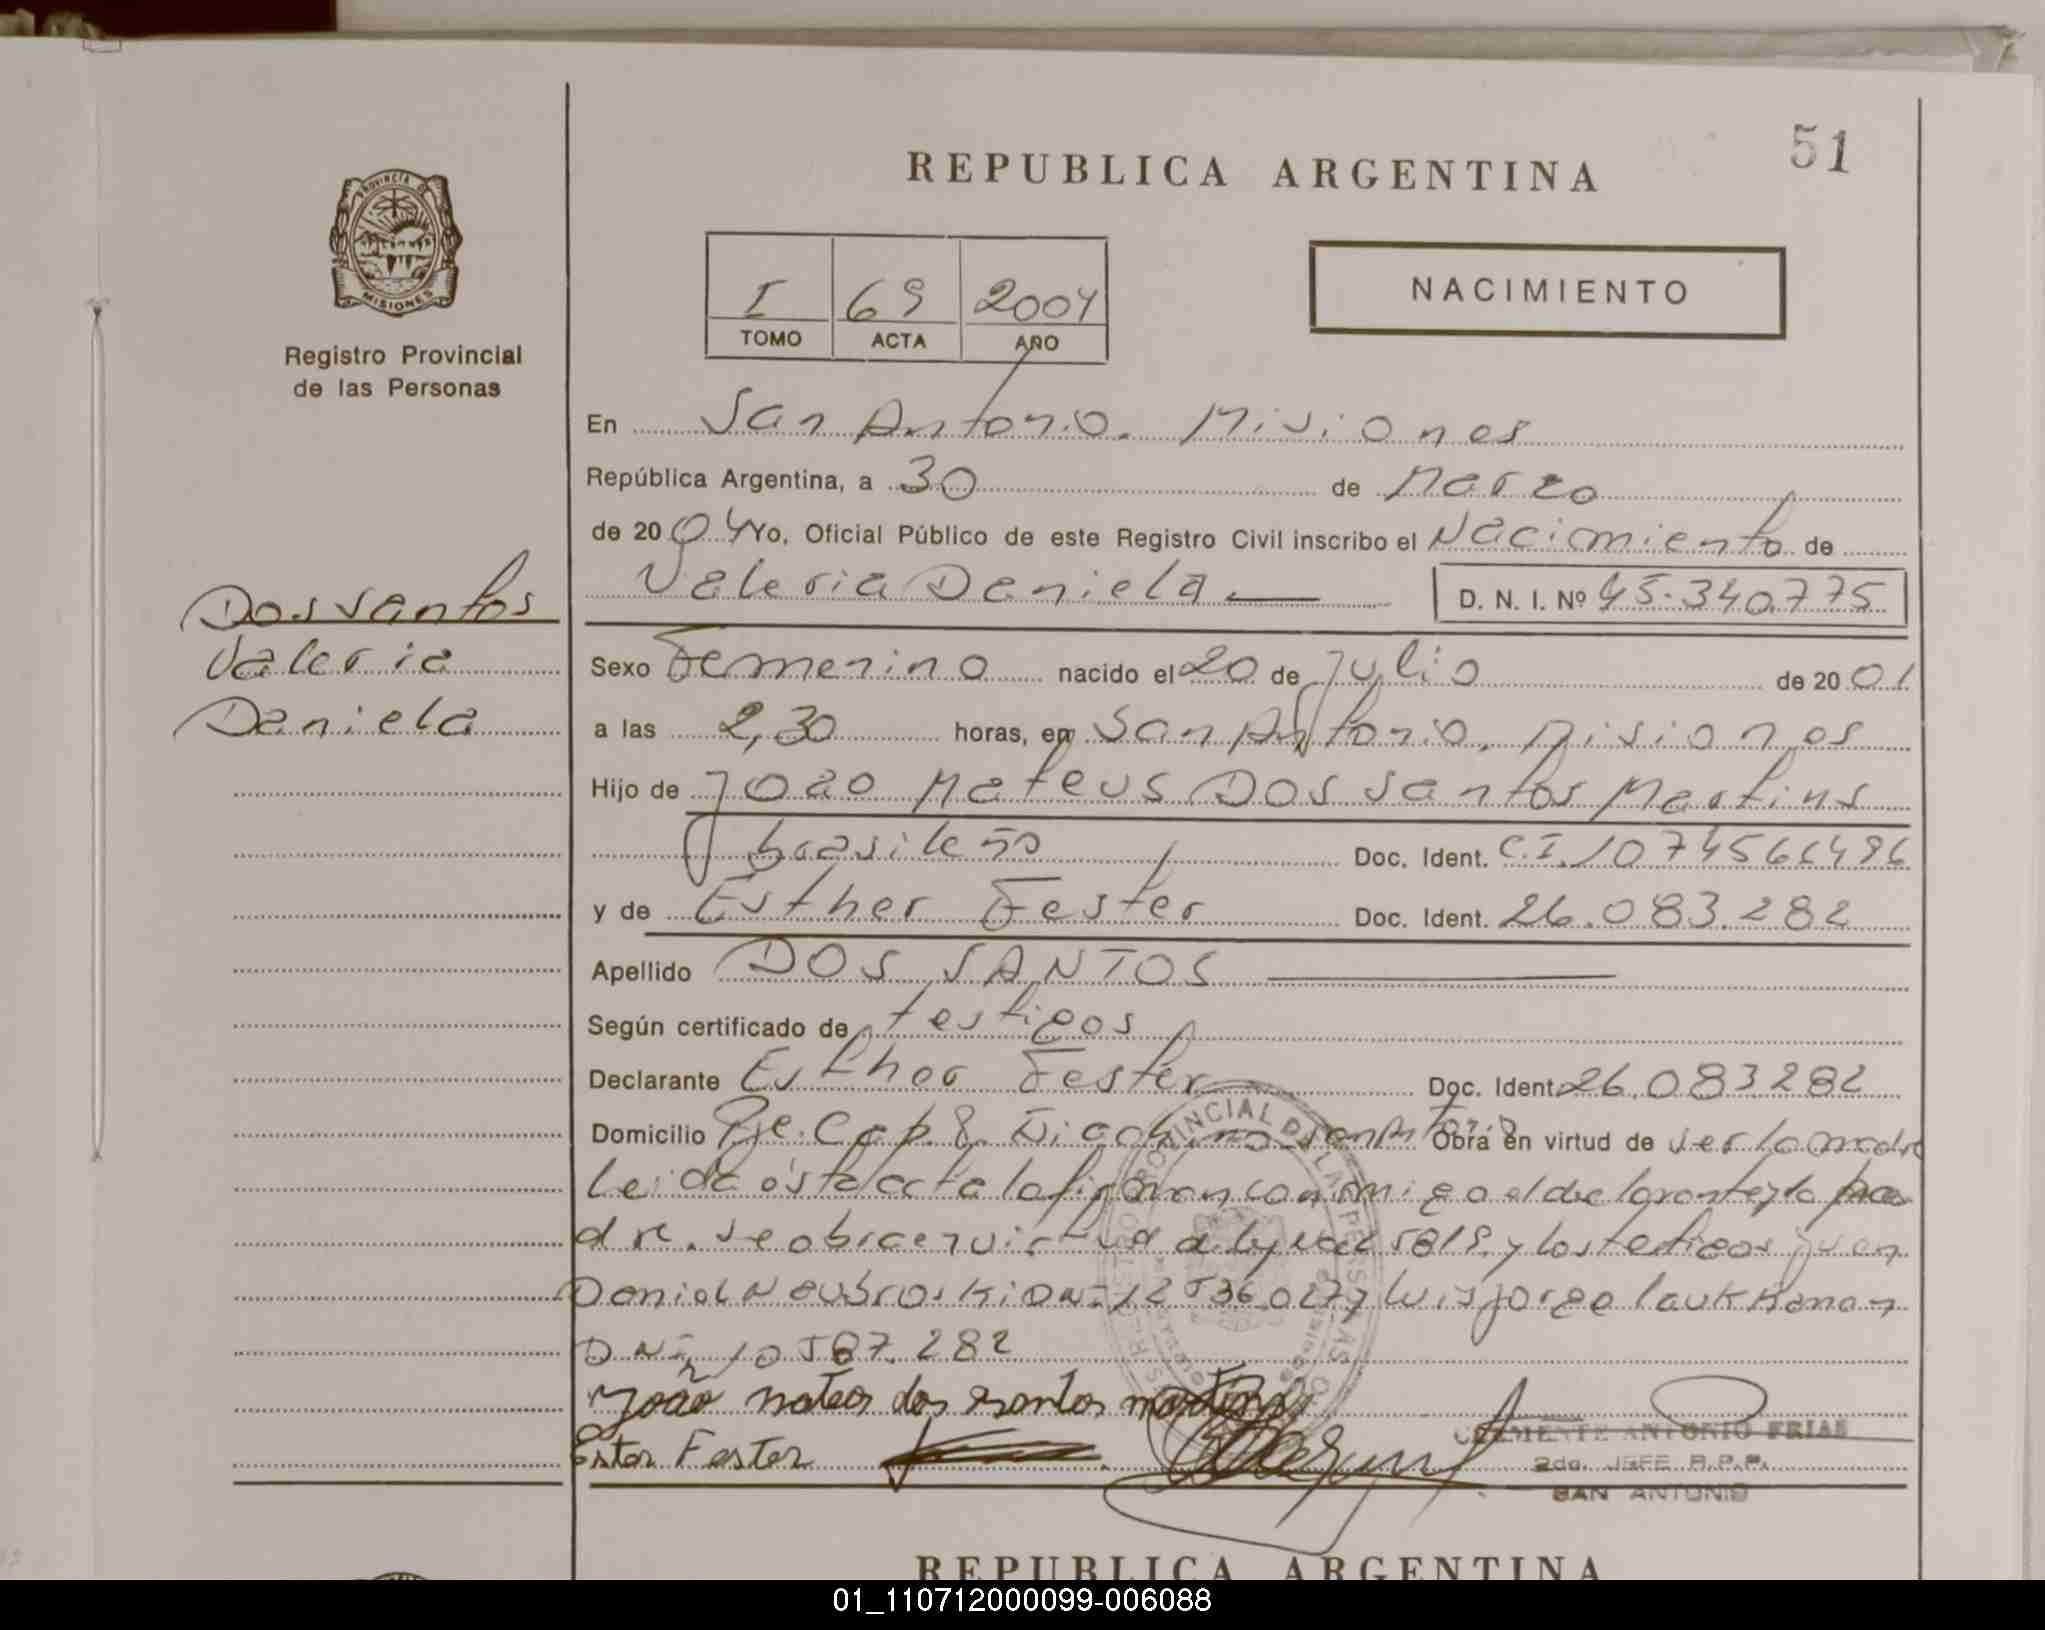 51
REPUBLICA ARGENTINA
PROVINCIA DE
MISIONES
Registro Provincial
de las Personas
I 69 2004
TOMO ACTA AÑO
NACIMIENTO
En San Antonio. Misiones
República Argentina, a 30 de Marzo
de 2004 Yo, Oficial Público de este Registro Civil inscribo el Nacimiento de
Valeria Daniela D. N. I. Nº 45.340.775
Dos santos
Valeria
Daniela
Sexo Femenino nacido el 20 de Julio de 2001
a las 2,30 horas, en San Antonio. Misiones
Hijo de Joao Mateus Dos Santos Martins
brasileño Doc. Ident. C.I.
y de Esther Fester Doc. Ident. 26.083.282
Apellido DOS SANTOS
Según certificado de testigos
Declarante Esther Fester Doc. Ident. 26.083282
Domicilio Pje. Obra en virtud de ser la madre
Leida ésta acta la firman conmigo el declarante y lo pa
dre. y los testigos Juan
Daniel DNI y Luis Jorge
DNI 10.587.282
João mateos dos santos martins
Ester Fester
CLEMENTE ANTONIO FRIAS
2do. JEFE R.P.P.
SAN ANTONIO
REPUBLICA ARGENTINA
01_110712000099-006088